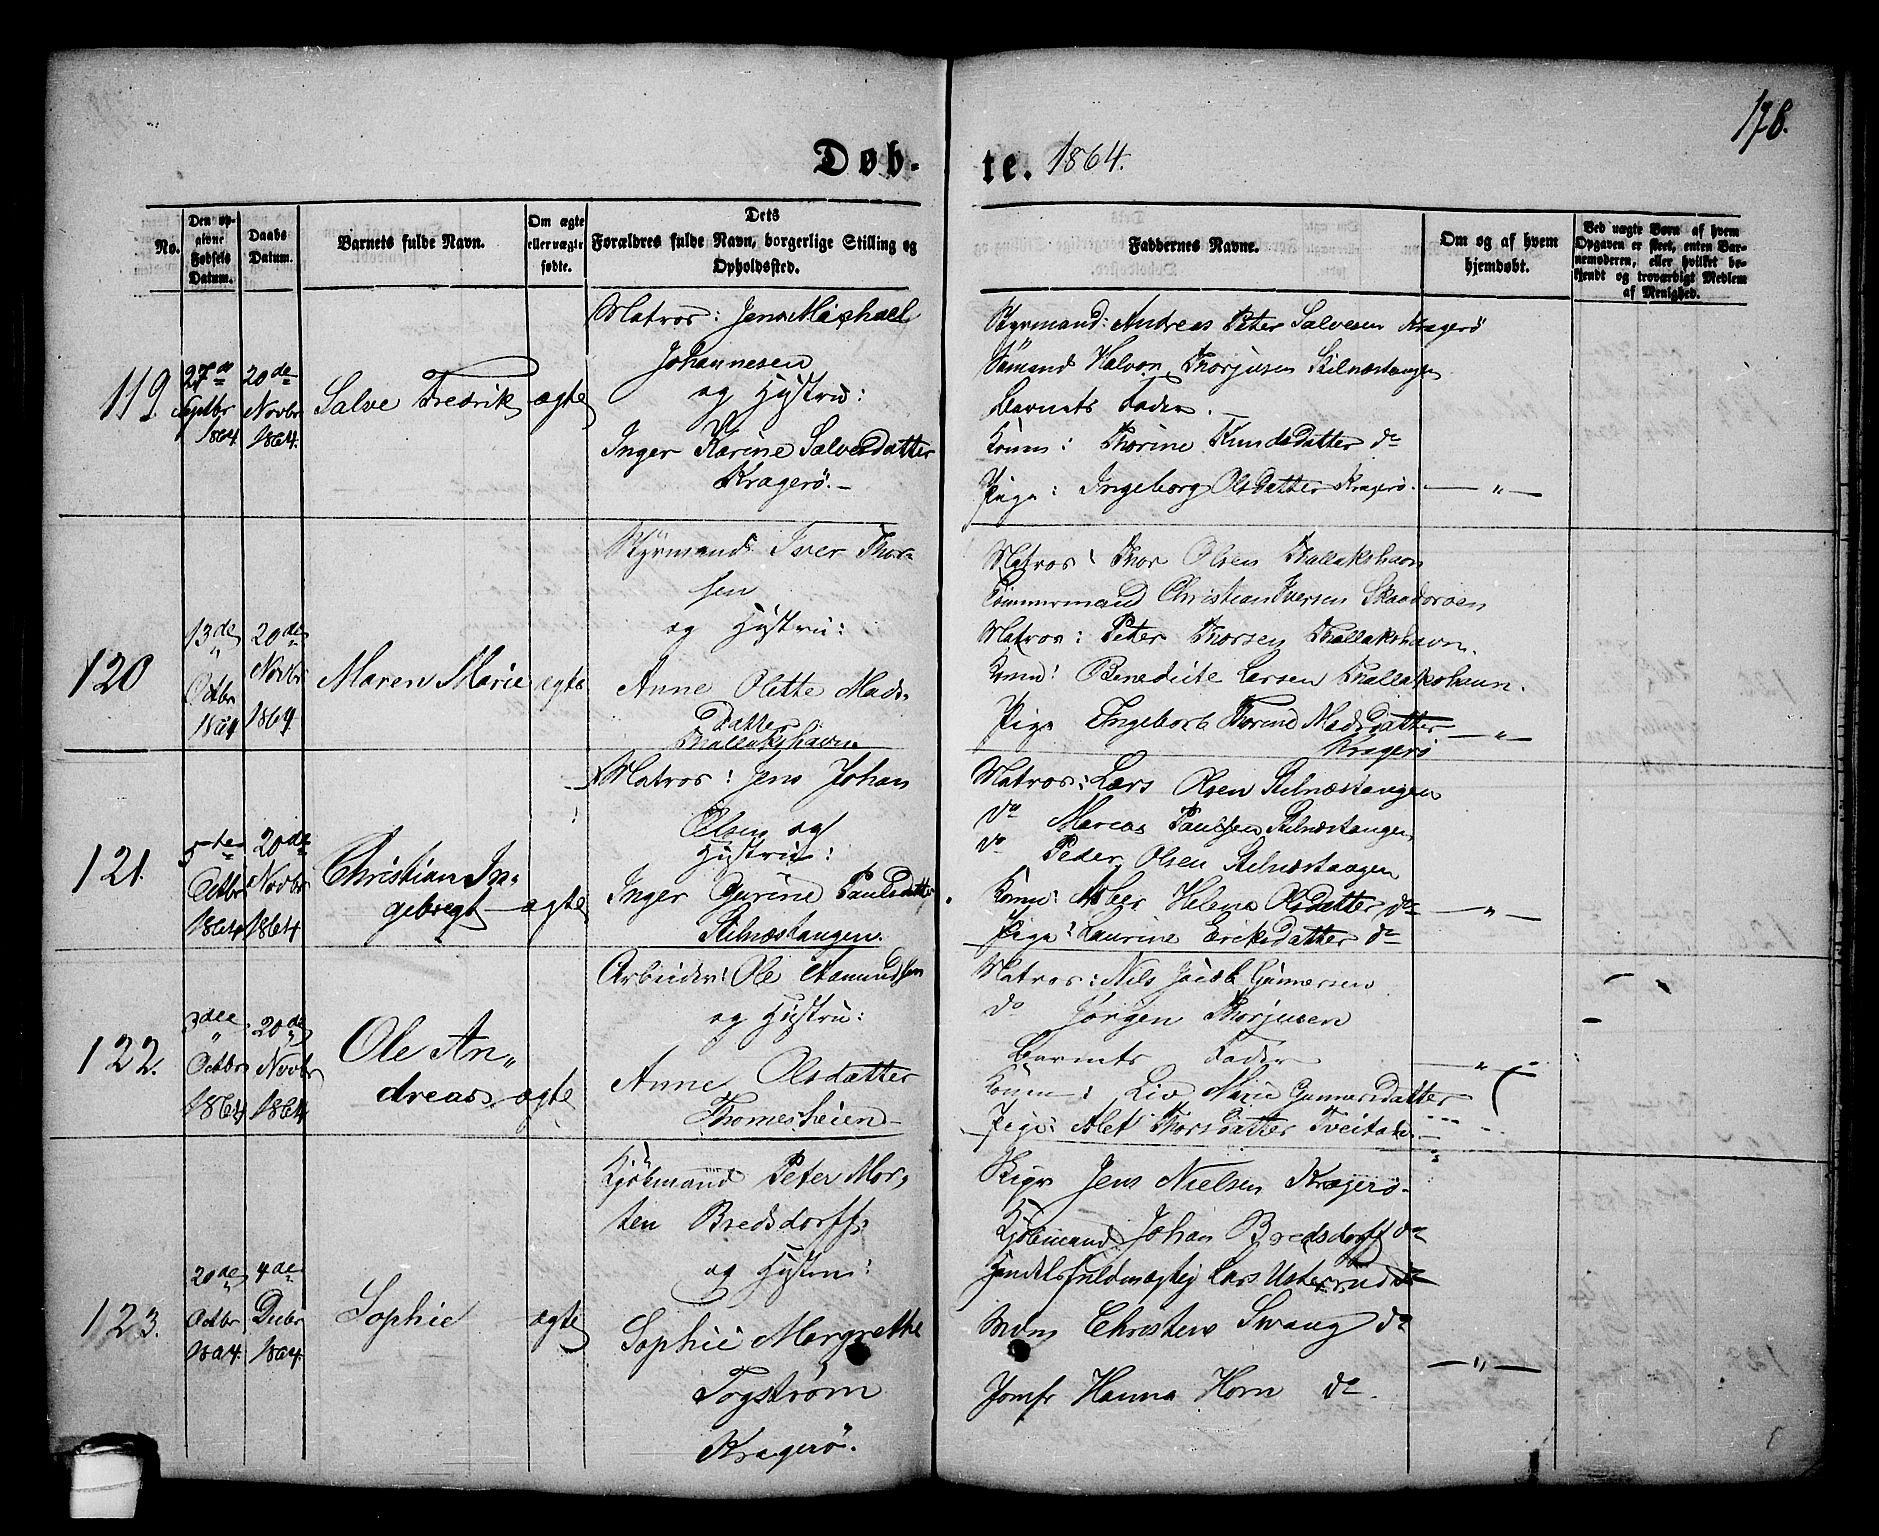 178.
Døb-
te. 1864.
No.
Den op-
givne
Fødsels
Datum.
Daabs
Datum.
Barnets fulde Navn.
Om ægte
eller uægte
fødte.
Dets
Forældres fulde Navn, borgerlige Stilling og
Opholdssted.
Faddernes Navne.
Om og af hvem
hjemdøbt.
Ved uægte Børn af hvem
Opgaven er skeet, enten Bar-
nemoderen, eller hvilket be-
kjendt og troværdigt Medlem
af Menighed.
119.
27de
Septbr
1864
20de
Novbr
1864.
Salve Fredrik
ægte
Matros: Jens Michael
Johannesen
og Hustru:
Inger Karine Salvesdatter
Kragerö.-
Styrmand: Andreas Peter Salvesen Kragerö
Sömand Halvor Thorjusen Stilnæstangen
Barnets Fader.-
Konen: Thorine Knudsdatter do
Pige: Ingeborg Olsdatter Kragerö. — " —
120
13de
"
Octbr
1864
20de
Novbr
1864
Maren Marie
ægte
Styrmand Iver Thor-
sen
og Hustru:
Anne Olette Mads-
datter
Thallakshavn
Matros: Thor Olsen Thallakshavn
Tömmermand Christian Iversen
Matros: Peter Thorsen Thallakshavn.
Kone: Benedicte Larsen Thallakshavn.
Pige Ingeborb Thorine Madsdatter — " —
Kragerö
121.
5te
Octbr
1864
20de
Novbr
1864
Christian In-
gebregt
ægte
Matros: Jens Johan
Olsen og
Hustru:
Inger Gurine Paulsdatter
Stilnæstangen.
Matros: Lars Olsen Stilnæstangen
do Marcus Paulsen Stilnæstangen
do Peder Olsen Stilnæstangen
Kone: Helene Olsdatter do — " —
Pige: Laurine Ericksdatter do
122.
3die
"
Octbr
1864
20de
"
Novbr
1864
Ole An-
dreas
ægte
Arbeider: Ole Aamundsen
og Hustru:
Anne Olsdatter
Thomesheien
Matros: Nils Jacob Gunnersen
do Jörgen Thorjusen
Barnets Fader — " —
Konen: Liv Marie Gunnersdatter
Pige: Alet Thorsdatter
123.
20de
"
Octbr
1864.
4de
"
Decbr
1864.
Sophie
ægte
Kjöbmand Peter Mor-
ten Bredsdorff
og Hustru:
Sophie Margrethe
Togström
Kragerö.
Jens Nielsen Kragerö.
Kjöbmand Johan Bredsdorff do
Handelsfuldmægtig Lars do
Christine Swang do
Jomfr Hanna Horn do. — " —